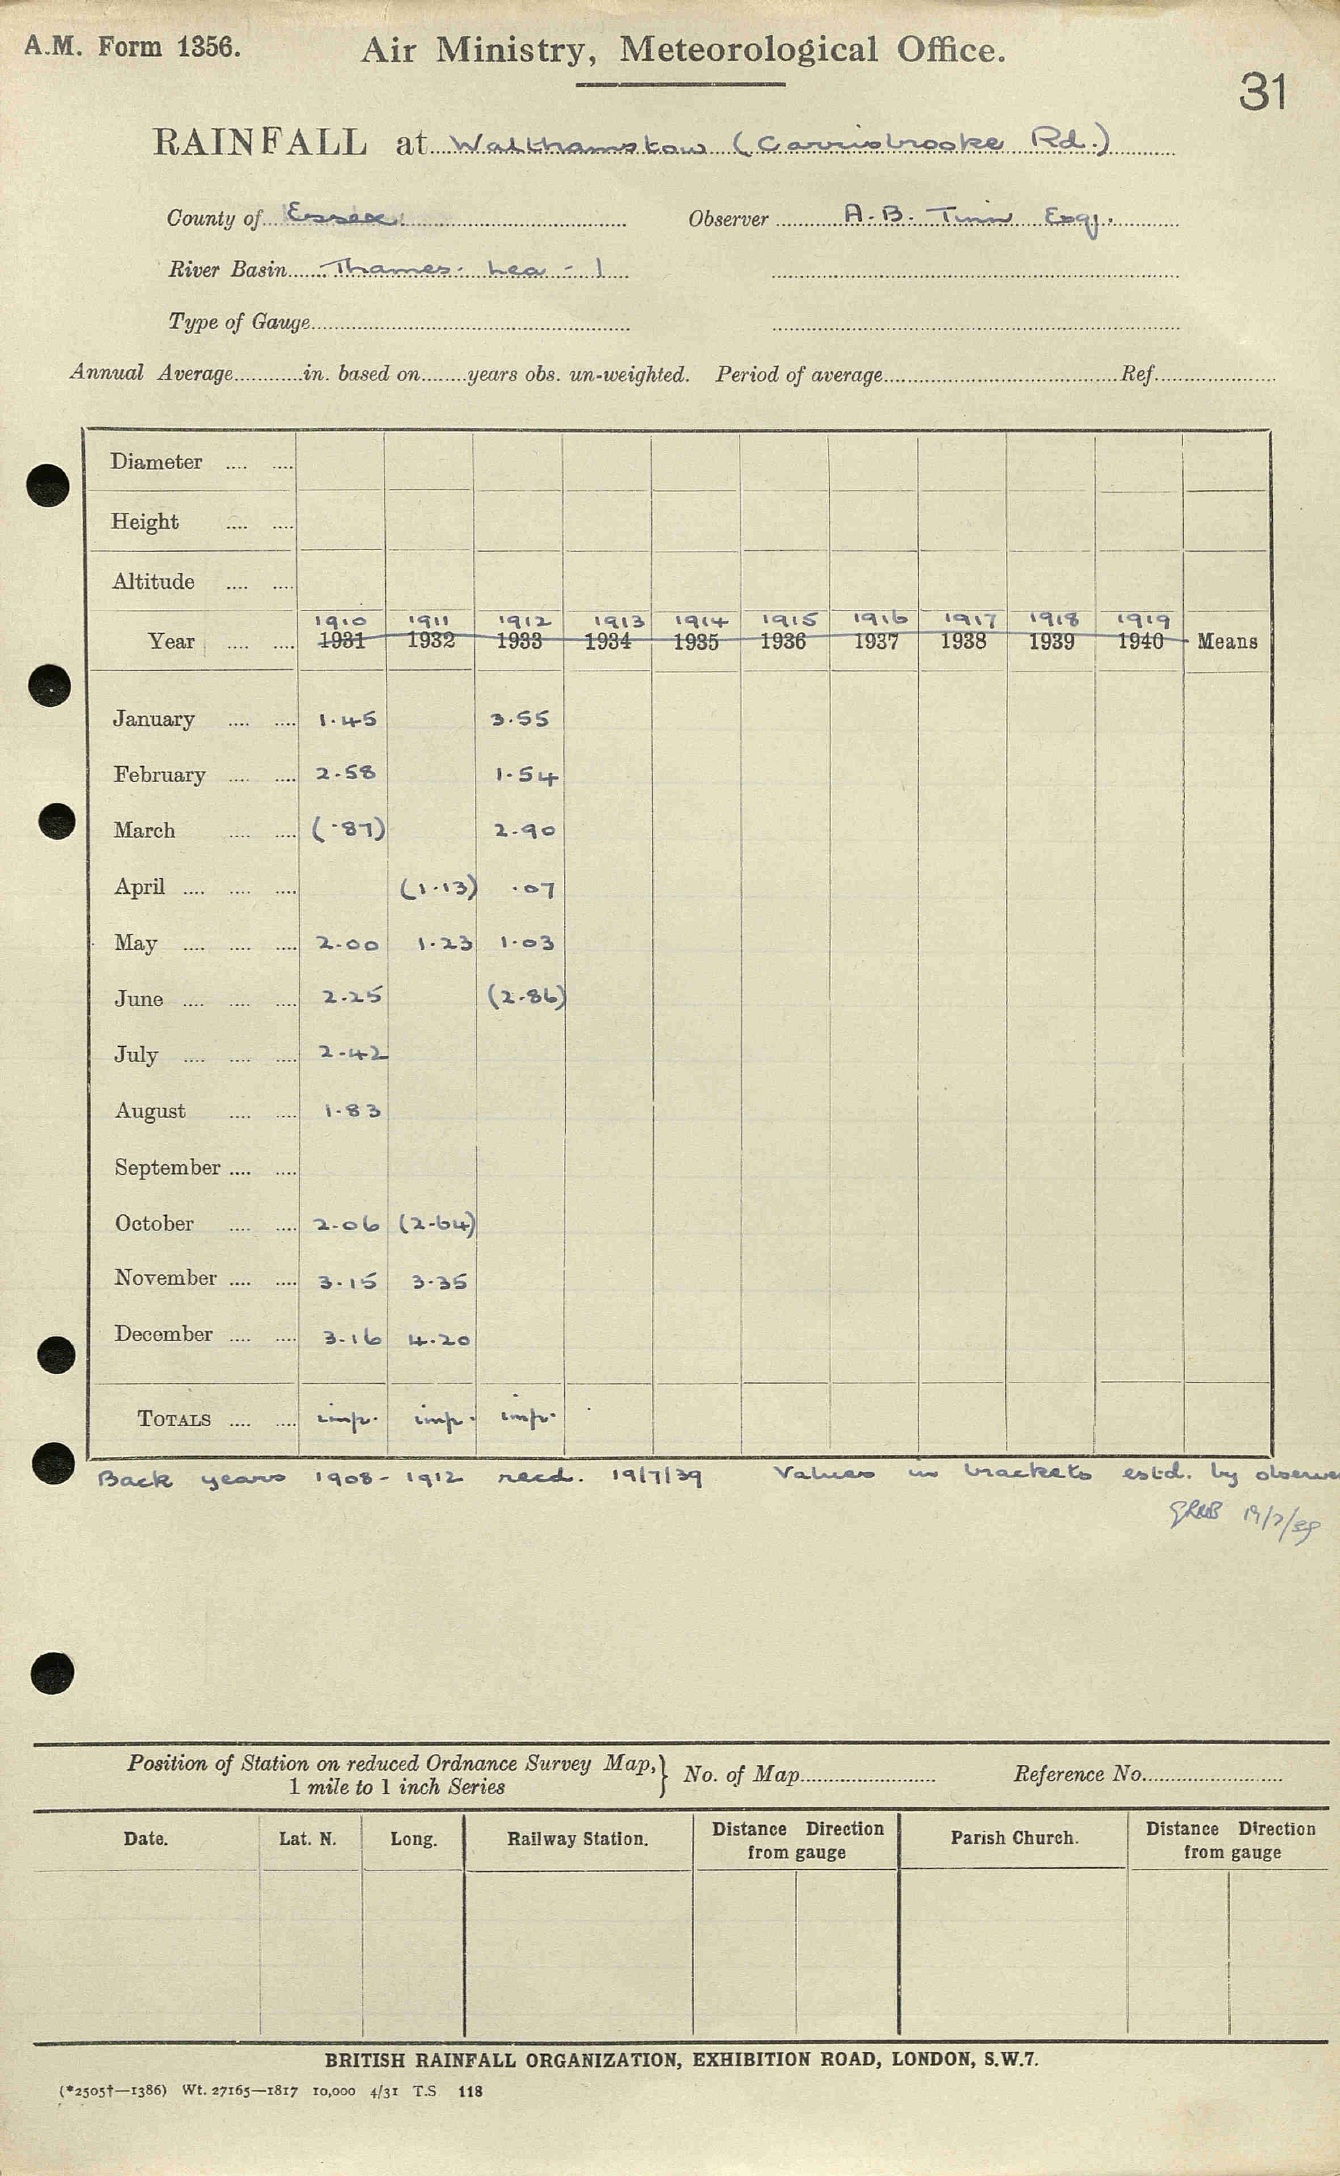 A.M. Form 1356.
Air Ministry, Meteorological Office.
31
RAINFALL at Walthamstow (Carrisbrooke Rd.)
County of Essex. Observer A.B. Tinn Esq.
River Basin Thames. Lea - 1
Type of Gauge
Annual Average in. based on years obs. un-weighted. Period of average Ref.
Diameter
Height
Altitude
1910 1911 1912 1913 1914 1915 1916 1917 1918 1919
Year 1931 1932 1933 1934 1935 1936 1937 1938 1939 1940 Means
January 1.45 3.55
February 2.58 1.54
March (.87) 2.90
April (1.13) .07
May 2.00 1.23 1.03
June 2.25 (2.86)
July 2.42
August 1.83
September
October 2.06 (2.64)
November 3.15 3.35
December 3.16 4.20
TOTALS imp. imp. imp.
Back years 1908-1912 recd. 19/7/39 Values in brackets estd. by observer
19/7/39
Position of Station on reduced Ordnance Survey Map, } No. of Map Reference No.
1 mile to 1 inch Series
Date. Lat. N. Long. Railway Station. Distance Direction from gauge Parish Church. Distance Direction from gauge
BRITISH RAINFALL ORGANIZATION, EXHIBITION ROAD, LONDON, S.W.7.
(*2505†—1386) Wt. 27165—1817 10,000 4/31 T.S 118